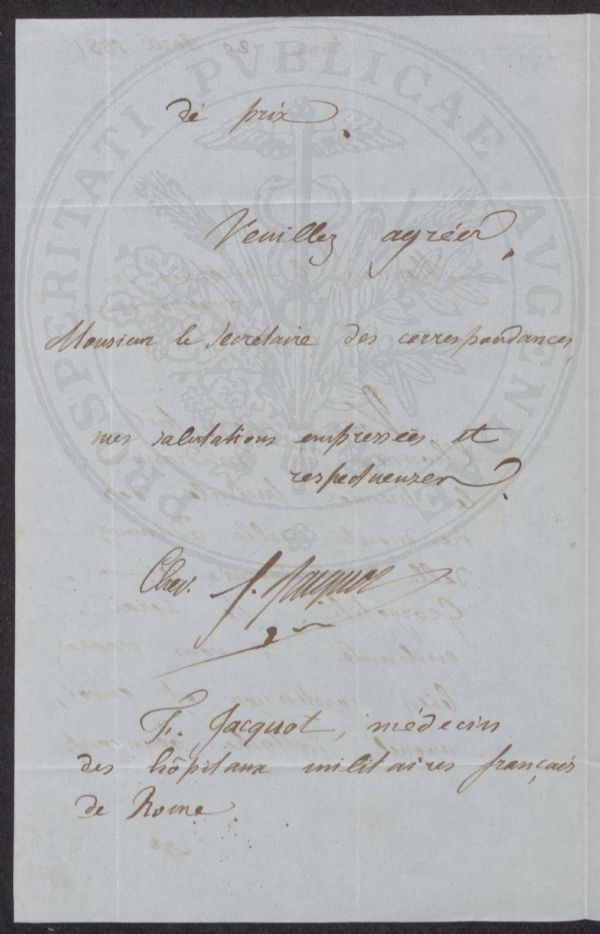 de prix.
Veuillez agréer,
Monsieur le secrétaire des correspondances,
mes salutations empressées et
respectueuses.
Chev. F. Jacquot
F. Jacquot, médecin
des hôpitaux militaires français
de Rome.
PROSPERITATI PVBLICAE AVGENDAE